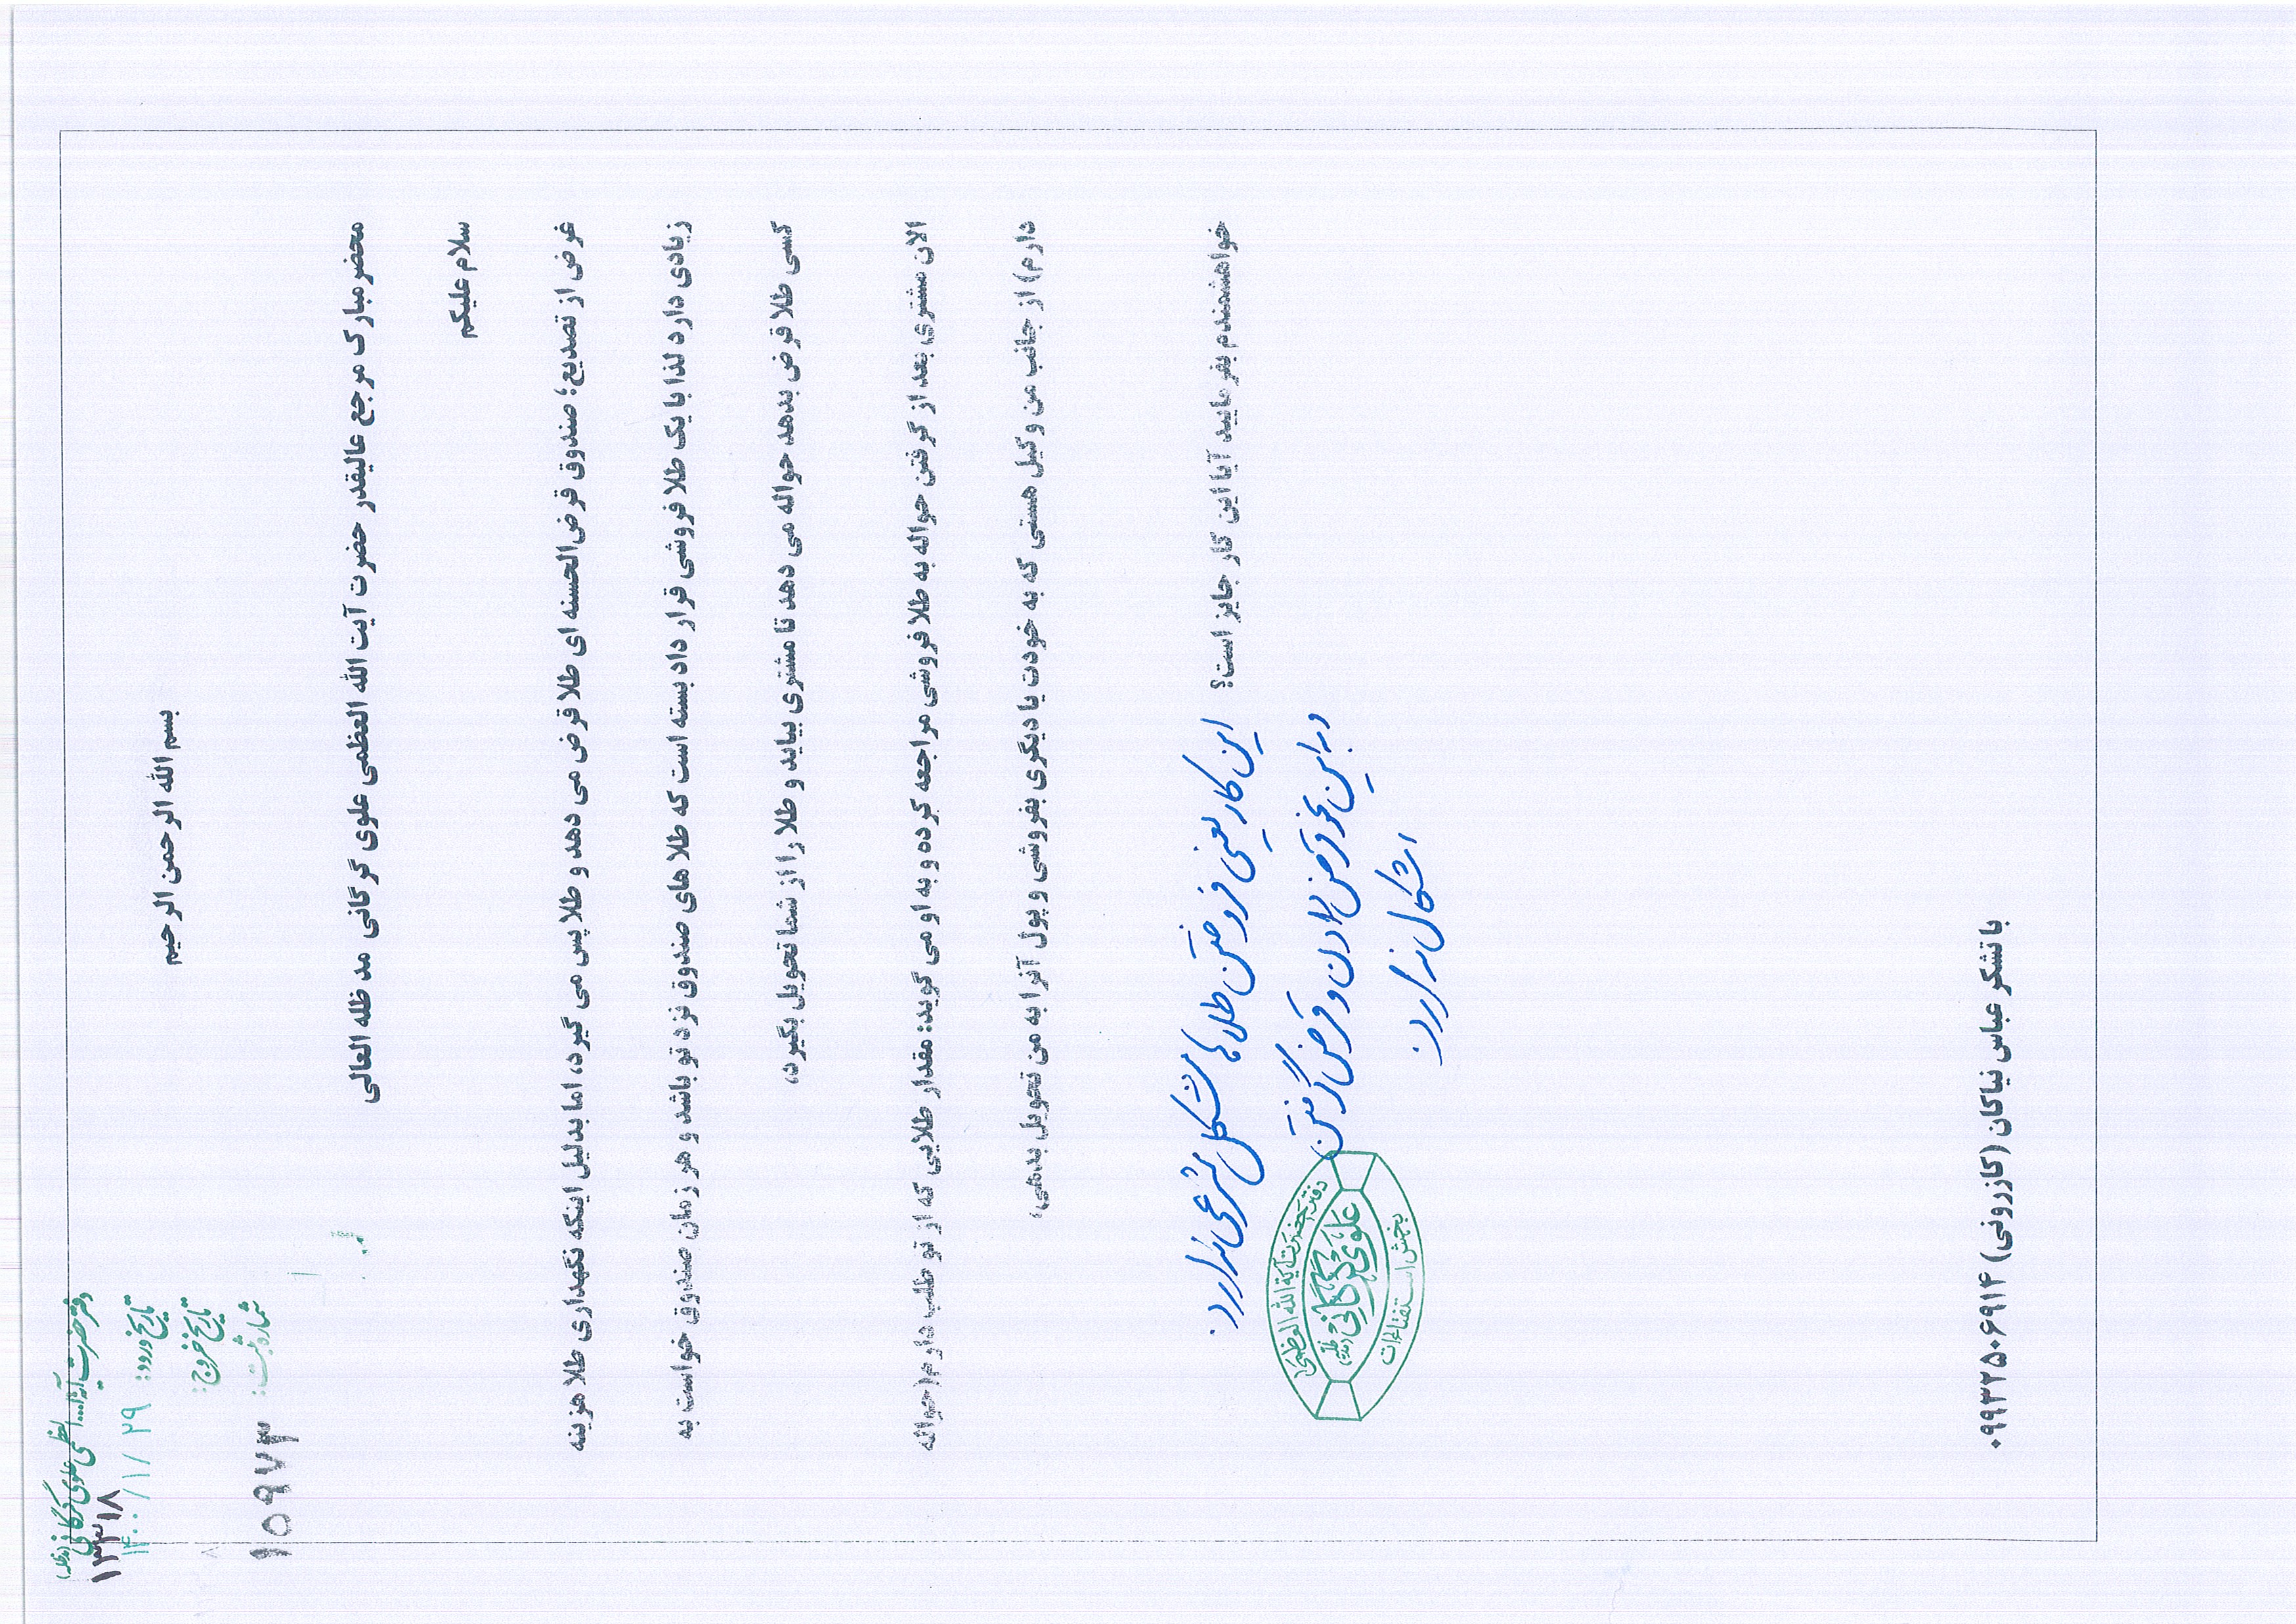 دفتر حضرت آیة ا... العظمی علوی گرگانی (مدظله)
۱۳۳۱۸
تاریخ ورود: ۱۴۰۰/۱/۲۹
تاریخ خروج:
شماره ثبت: ۱۵۹۷۳
بسم الله الرحمن الرحیم
محضر مبارک مرجع عالیقدر حضرت آیت الله العظمی علوی گرگانی مد ظله العالی
سلام علیکم
غرض از تصدیع؛ صندوق قرض‌الحسنه ای طلا قرض می دهد و طلا پس می گیرد، اما بدلیل اینکه نگهداری طلا هزینه
زیادی دارد لذا با یک طلا فروشی قرار داد بسته است که طلا های صندوق نزد تو باشد و هر زمان صندوق خواست به
کسی طلا قرض بدهد، حواله می دهد تا مشتری بیاید و طلا را از شما تحویل بگیرد،
الان مشتری بعد از گرفتن حواله به طلا فروشی مراجعه کرده و به او می گوید: مقدار طلایی که از تو طلب دارم(حواله
دارم) از جانب من وکیل هستی که به خودت یا دیگری بفروشی و پول آنرا به من تحویل بدهی،
خواهشمندم بفرمایید آیا این کار جایز است؟
این کار یعنی فروختن طلاها مشکل شرعی ندارد.
و به این نحو قرض دادن و قرض گرفتن
اشکال ندارد.
دفتر حضرت آیة الله العظمی
علوی گرگانی مدظله
بخش استفتائات
با تشکر عباس نیاکان (کازرونی) ۰۹۹۳۲۵۰۶۹۱۴